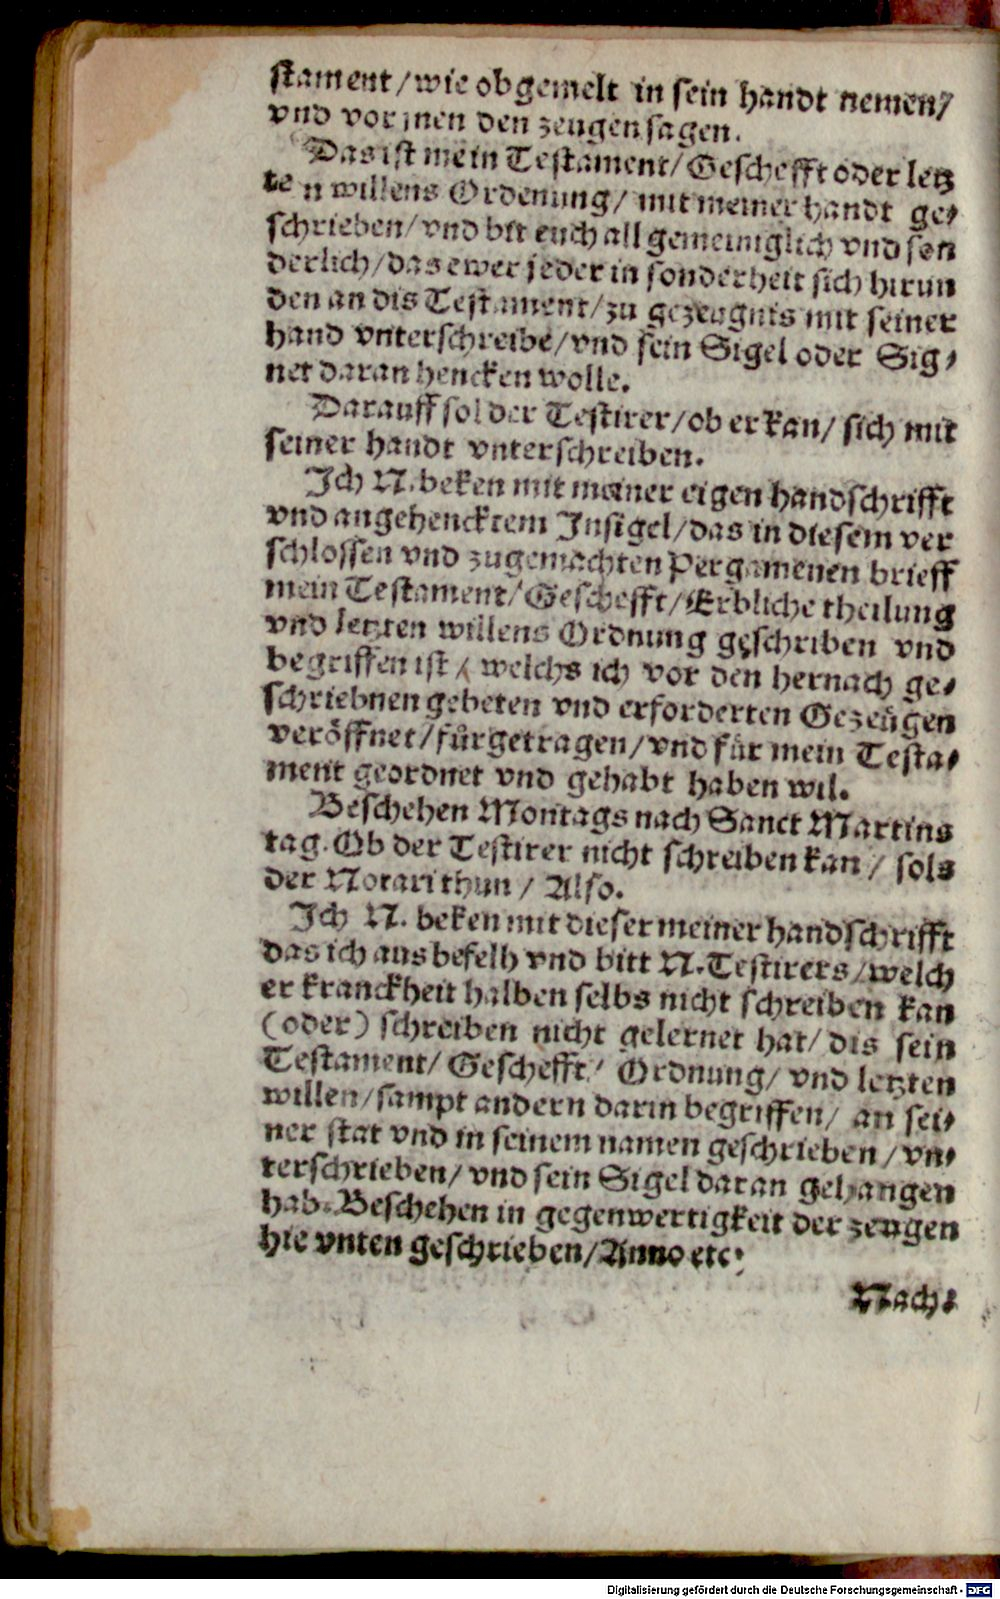 stament/wie obgemelt in sein handt nemen/
vnd vor jnen den zeugen sagen.
Das ist mein Testament/Geschefft oder letz
ten willens Ordenung/ mit meiner handt ge⸗
schrieben/vnd bit euch all gemeiniglich vnd son
derlich/das ewer jeder in sonderheit sich hirun
den an dis Testament/zu gezeugnis mit seiner
hand vnterschreibe/vnd sein Sigel oder Sig⸗
net daran hencken wolle.
Darauff sol der Testirer/ob er kan/ sich mit
seiner handt vnterschreiben.
Ich N. beken mit meiner eigen handschrifft
vnd angehencktem Insigel/das in diesem ver
schlossen vnd zugemachten Pergamenen brieff
mein Testament/Geschefft/Erbliche theilung
vnd letzten willens Ordnung geschriben vnd
begriffen ist/ welchs ich vor den hernach ge⸗
schriebnen gebeten vnd erforderten Gezeugen
veröffnet/fürgetragen/vnd für mein Testa⸗
ment geordnet vnd gehabt haben wil.
Beschehen Montags nach Sanct Martins
tag. Ob der Testirer nicht schreiben kan/ sols
der Notari thun/ Also.
Ich N. beken mit dieser meiner handschrifft
das ich aus befelh vnd bitt N. Testirers/welch
er kranckheit halben selbs nicht schreiben kan
(oder) schreiben nicht gelernet hat/ dis sein
Testament/ Geschefft/ Ordnung/ vnd letzten
willen/sampt andern darin begriffen/ an sei⸗
ner stat vnd in seinem namen geschrieben/vn⸗
terschrieben/ vnd sein Sigel daran gehangen
hab. Beschehen in gegenwertigkeit der zeugen
hie vnten geschrieben/Anno etc.
Nach⸗
Digitalisierung gefördert durch die Deutsche Forschungsgemeinschaft - DFG